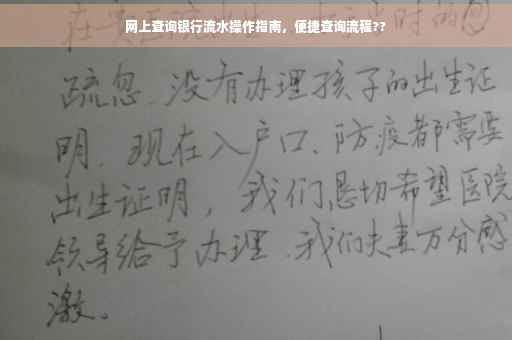 网上查询银行流水操作指南，便捷查询流程??
疏忽、没有办理孩子的出生证
明、现在入户口、防疫都需要
出生证明，我们恳切希望医院
领导给予办理、我们夫妻万分感
激。